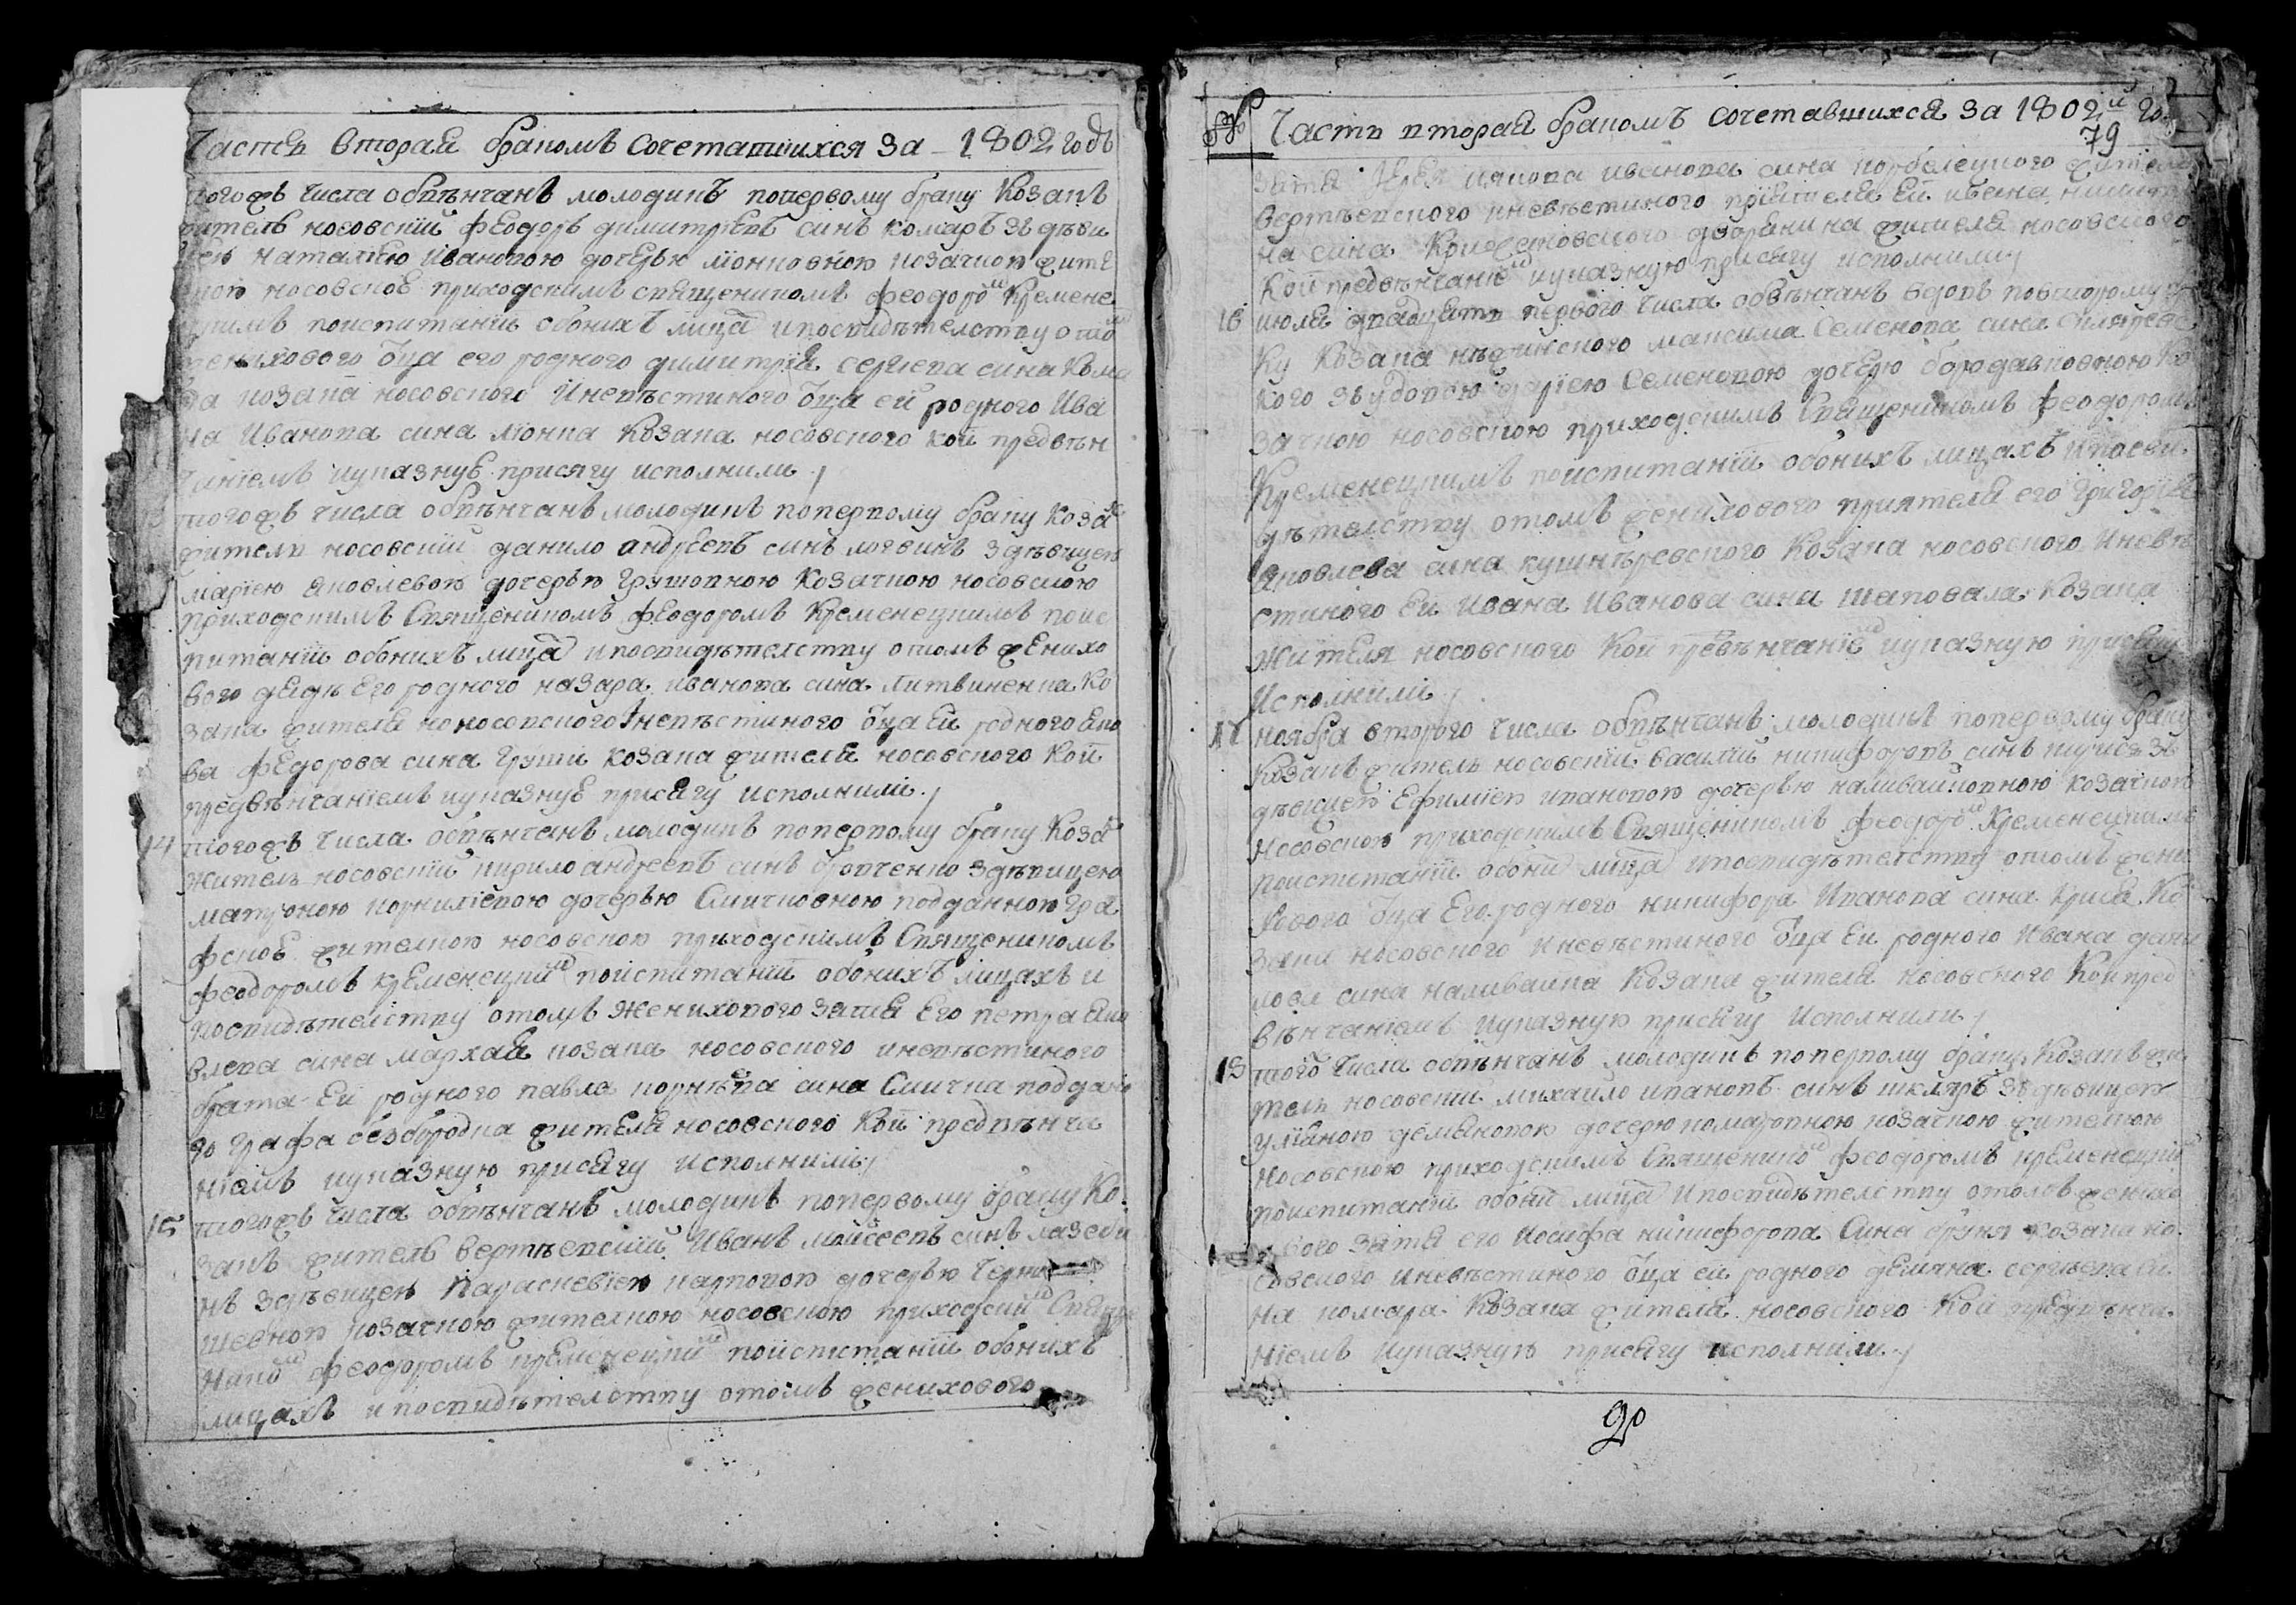 Часть вторая бракомъ сочетавшихся за 1802 годъ
тогожъ числа обвѣнчанъ молодикъ попервому браку козакъ
житель носовскій феодоръ димитріевъ синъ комаръ зъ дѣви
цею наталіею ивановою дочерью ліонковною козачкою жите
лкою носовскою приходскимъ священикомъ феодоромъ кремене
цкимъ поиспитаніи обоихъ лицахъ ипосвидѣтелству отомъ
женихового отца его родного димитрія сергіева сина кома
ра козака носовского иневѣстиного отца ей родного ива
на иванова сина ліонка козака носовского кои предвѣн
чаніемъ иуказную присягу исполнили
13 тогожъ числа обвѣнчанъ молодикъ попервому браку козакъ
житель носовскій данило андреевъ синъ логвинъ здѣвицею
маріею яковлевою дочерью грушовною козачкою носовскою
приходскимъ священикомъ феодоромъ кременецкимъ поис
питаніи обоихъ лицахъ ипосвидѣтелству отомъ женихо
вого дядѣ его родного назара иванова сина литвиненка ко
зака жителя носовского иневѣстиного отца ей родного яко
ва федорова сина груши козака жителя носовского кои
предвѣнчаніемъ иуказную присягу исполнили
14 тогожъ числа обвѣнчанъ молодикъ попервому браку козакъ
житель носовскій кирило андреевъ синъ здѣвицею
матроною корниліевою дочерью смичковною подданною гра
фскою жителкою носовскою приходскимъ священикомъ
феодоромъ кременецкимъ поиспитаніи обоихъ лицахъ и
посвидѣтелству отомъ женихового зятя его петра яко
влева сина мархая козака носовского иневѣстиного
брата ей родного павла корнѣева сина смичка подданно
го графа безбородка жителя носовского кои предвѣнча
ніемъ иуказную присягу исполнили
15 тогожъ числа обвѣнчанъ молодикъ попервому браку ко
закъ житель вертѣевскій иванъ моисеевъ синъ лазеби
къ здѣвицею параскевіею карповою дочерью
шевною козачкою жителкою носовскою приходскимъ священ
никомъ феодоромъ кременецкимъ поиспитаніи обоихъ
лицахъ ипосвидѣтелству отомъ женихового
Часть вторая бракомъ сочетавшихся за 1802й го
79
зятя иванова сина жителя
вертѣевского иневѣстиного пріятеля ей ивана
на сина дворянина жителя носовского
кои предвѣнчаніемъ иуказную присягу исполнили
16 июля двадцать первого числа обвѣнчанъ вдовъ повторому бра
ку козака нѣжинского максима семенова сина
кого зъ удовою даріею семеновою дочерю бородавковною ко
зачкою носовскою приходскимъ священикомъ феодоромъ
кременецкимъ поиспитаніи обоихъ лицахъ ипосви
дѣтелству отомъ женихового пріятеля его григорія
яковлева сина кушнѣревского козака носовского иневѣ
стиного ей ивана иванова сина шаповала козака
жителя носовского кои превѣнчаніемъ иуказную присягу
исполнили
17 ноября второго числа обвѣнчанъ молодикъ попервому браку
козакъ житель носовскій василій никифоровъ синъ зъ
дѣвицею ефиміею ивановою дочерью наливайковною козачкою
носовскою приходскимъ священикомъ феодоромъ кременецкимъ
поиспитаніи обоихъ лицахъ ипосвидѣтелству отомъ жени
хового отца его родного никифора иванова сина ко
зака носовского иневѣстиного отца ей родного ивана дани
лова сина наливайка козака жителя носовского кои пред
вѣнчаніемъ иуказную присягу исполнили
18 того числа обвѣнчанъ молодикъ попервому браку козакъ жи
тель носовскій михайло ивановъ синъ шкляръ зъ дѣвицею
уліяною демяновою дочерю комаровною козачкою жителкою
носовскою приходскимъ священикомъ феодоромъ кременецкимъ
поиспитаніи обоихъ лицахъ ипосвидѣтелству отомъ женихо
вого зятя его иосифа никифорова сина козака но
совского иневѣстиного отца ей родного демяна сергѣева си
на комара козака жителя носовского кои предвѣнча
ніемъ иуказную присягу исполнили